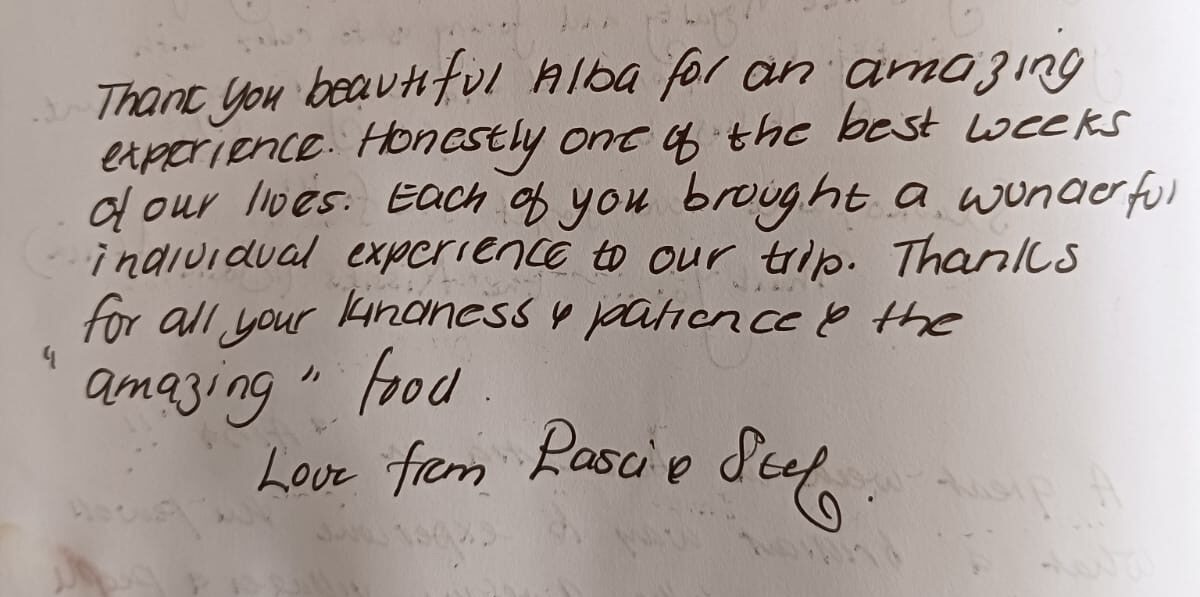 Thank you beautiful Alba for an amazing
experience. Honestly one of the best weeks
of our lives. Each of you brought a wonderful
individual experience to our trip. Thanks
for all your kindness & patience & the
"amazing" food.
Love from Pasci & Stef.